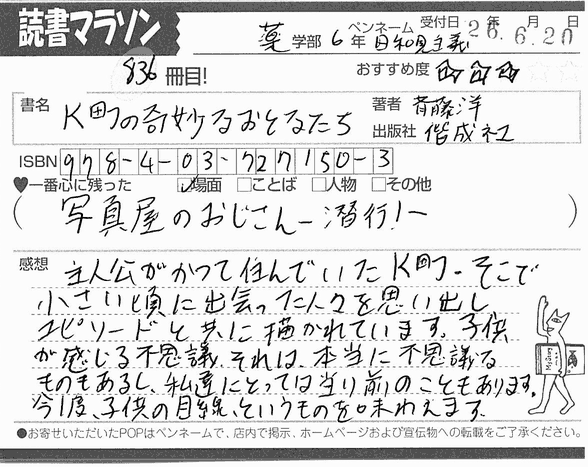 読書マラソン
薬学部 6年 ペンネーム 日和見主義 受付日 26年.6月.20日
836冊目! おすすめ度 ☆☆☆
書名 K町の奇妙なおとなたち 著者 斉藤洋
出版社 偕成社
ISBN 978-4-03-727150-3
♥一番心に残った ☑場面 □ことば □人物 □その他
(写真屋のおじさんー潜行!ー)
感想 主人公がかつて住んでいたK町。そこで
小さい頃に出会った人々を思い出し
エピソードと共に描かれています。子供
が感じる不思議、それは、本当に不思議な
ものもあるし、私達にとっては当り前のこともあります。
今1度、子供の目線、というものを味わえます。
●お寄せいただいたPOPはペンネームで、店内で掲示、ホームページおよび宣伝物への転載をご了承ください。